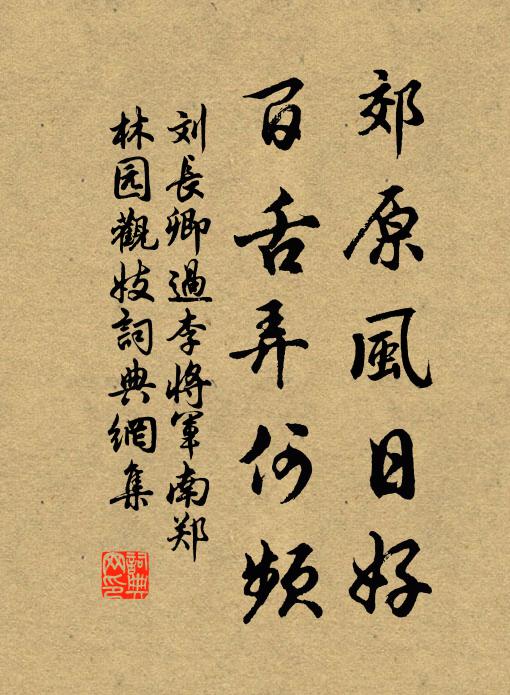 郊原風日好
百舌弄何頻
刘長卿過李將軍南郑
林园觀妓詞典網集
詞典網印